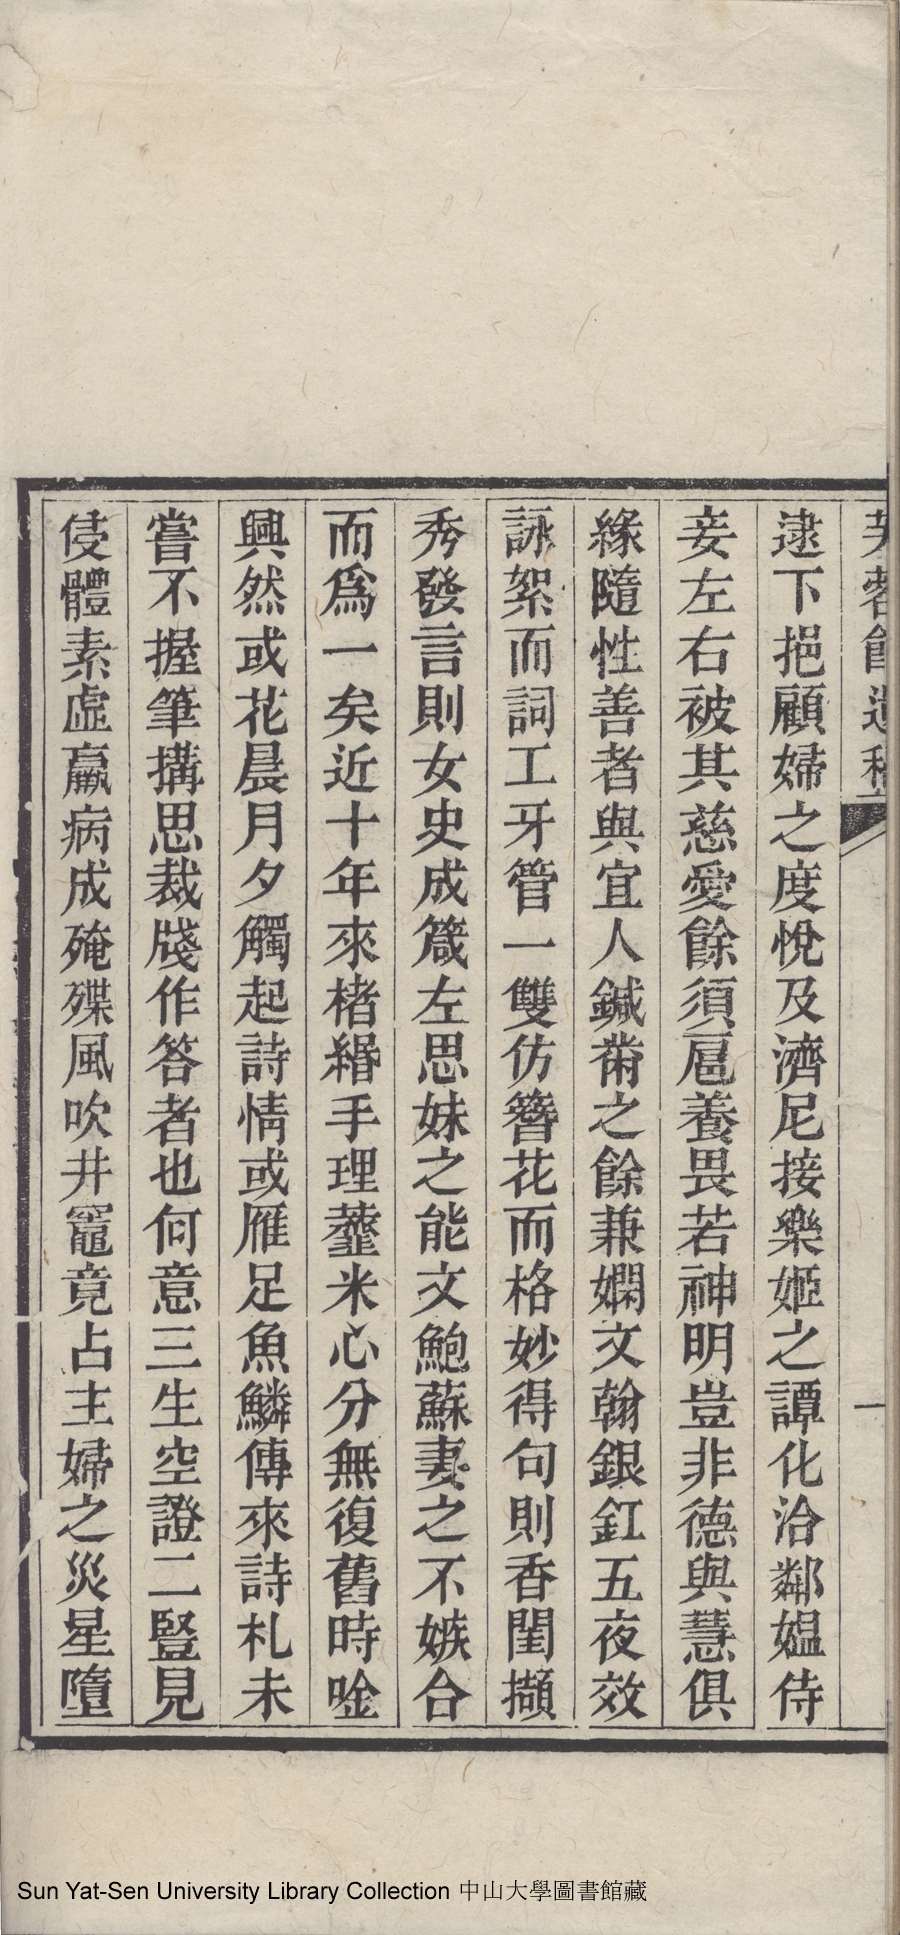 芙蓉館遺稿
一
逮下挹顧婦之度悅及濟尼接樂姬之譚化洽鄰媼侍
妾左右被其慈愛餘須扈養畏若神明豈非德與慧俱
緣隨性善者與宜人鍼黹之餘兼嫻文翰銀釭五夜效
詠絮而詞工牙管一雙仿簪花而格妙得句則香閨擷
秀發言則女史成箴左思妹之能文鮑蘇妻之不嫉合
而爲一矣近十年來楮緡手理虀米心分無復舊時唫
興然或花晨月夕觸起詩情或雁足魚鱗傳來詩札未
嘗不握筆搆思裁牋作答者也何意三生空證二豎見
侵體素虛羸病成殗殜風吹井竈竟占主婦之災星墮
Sun Yat-Sen University Library Collection 中山大學圖書館藏